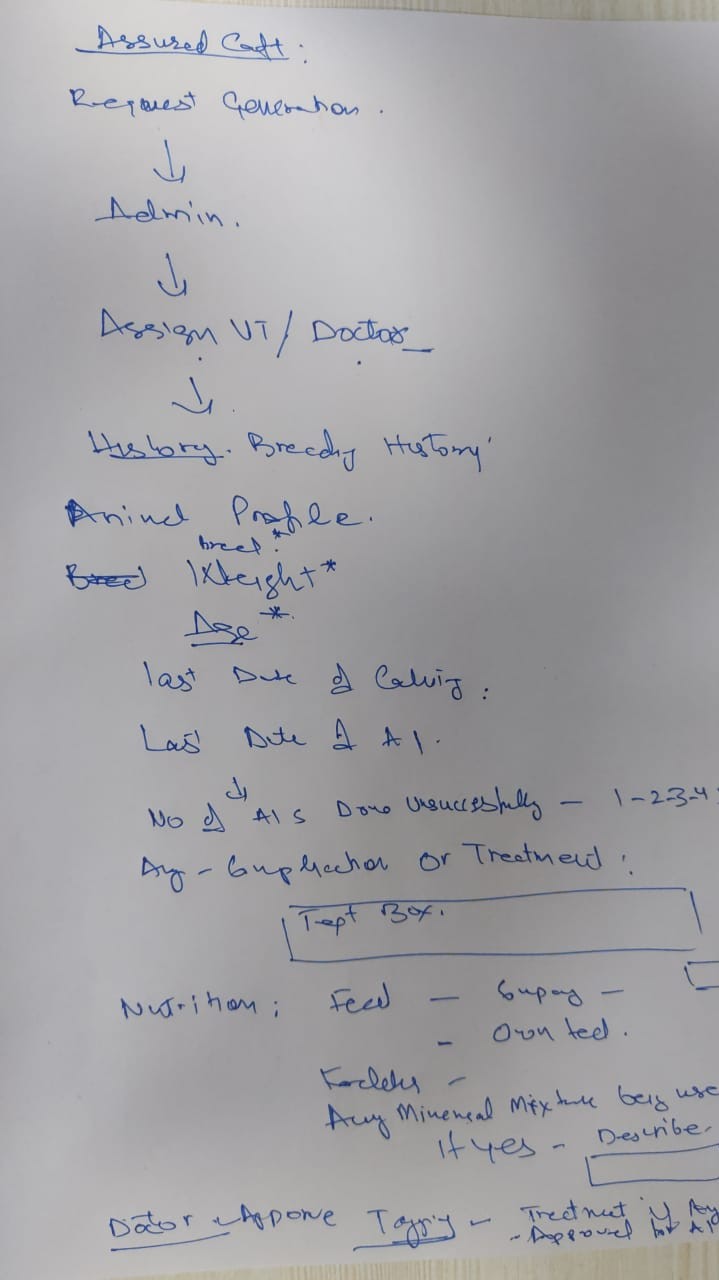 Assured Calf :
Request Generation.
↓
Admin.
↓
Assign VT / Doctor
↓
History. Breedig History
Animal Profile.
breed *
Weight *
Age *
last Date of Calvig :
Last Date of AI.
↓
No of AIS Done Unsuccessfully - 1-2-3-4
Any - Complication or Treatment :
Text Box.
Nutrition : Feed - Company -
- Own feed.
Fodder -
Any Mineral Mixture beig use
If yes - Describe.
Doctor - Approve Taggig - Treatment if Any
- Approved for AI